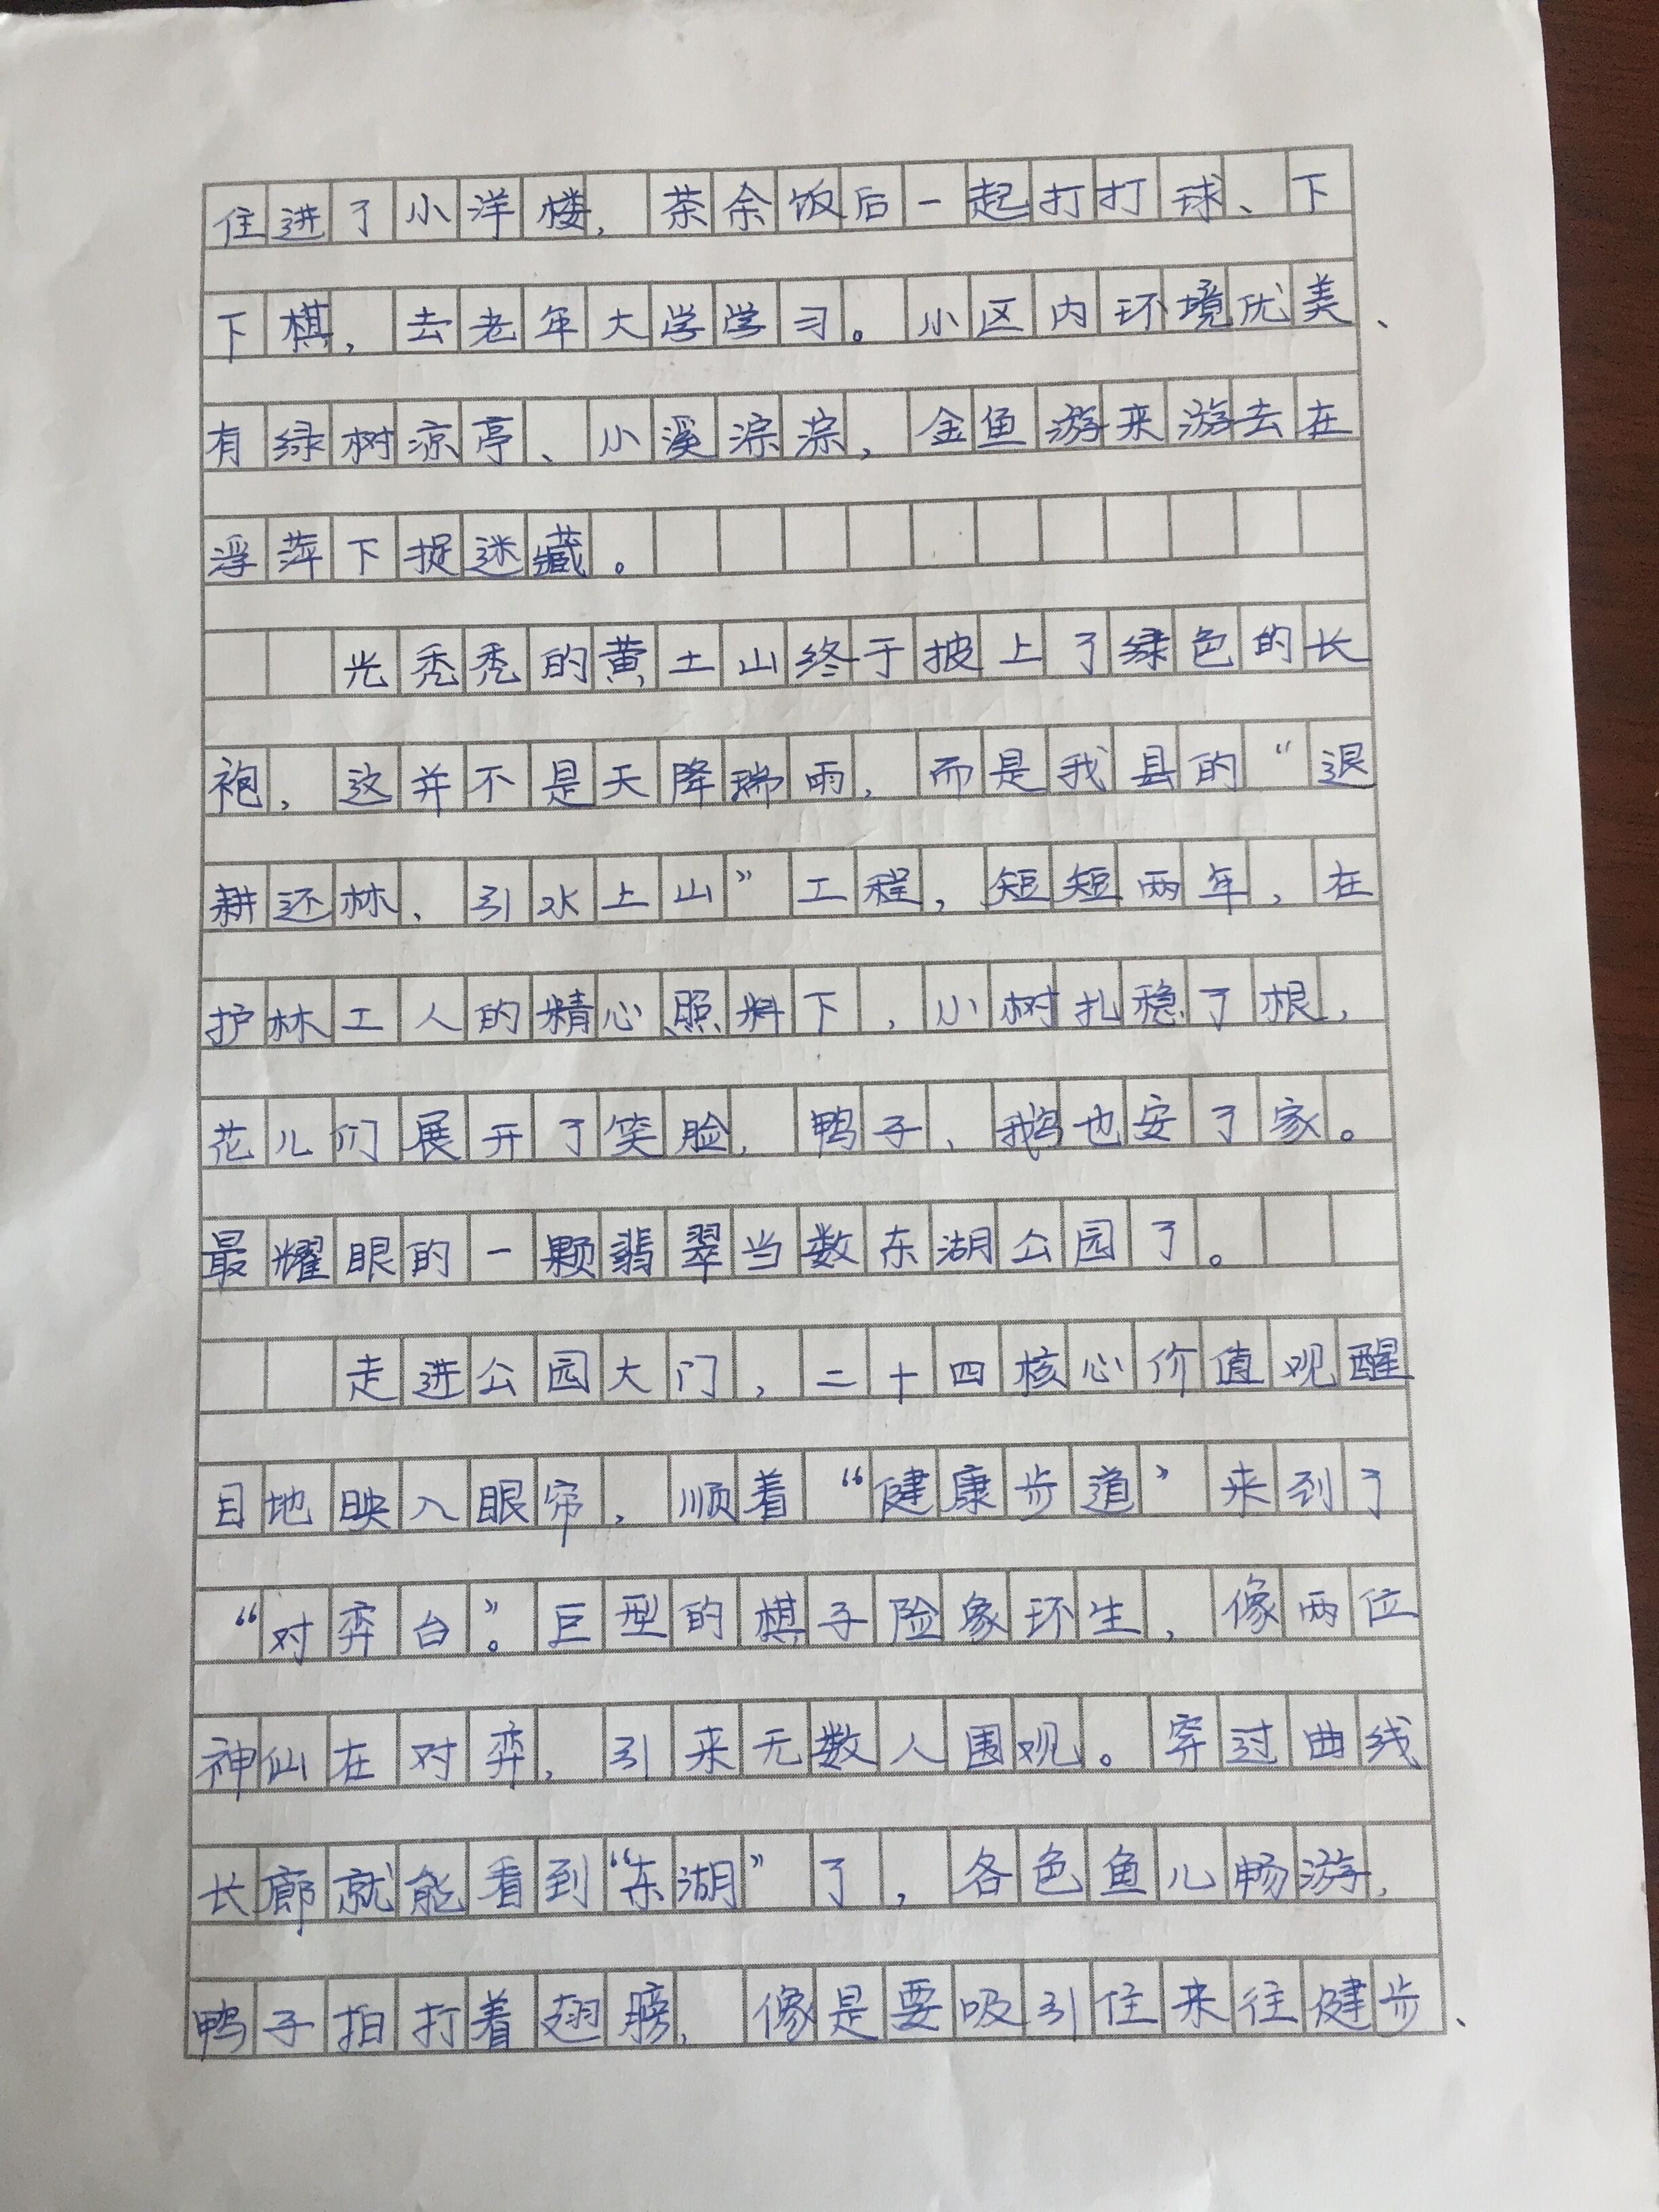 住进了小洋楼，茶余饭后一起打打球、下
下棋，去老年大学学习。小区内环境优美、
有绿树凉亭、小溪淙淙，金鱼游来游去在
浮萍下捉迷藏。
光秃秃的黄土山终于披上了绿色的长
袍，这并不是天降瑞雨，而是我县的“退
耕还林、引水上山”工程，短短两年，在
护林工人的精心照料下，小树扎稳了根，
花儿们展开了笑脸，鸭子、鹅也安了家。
最耀眼的一颗翡翠当数东湖公园了。
走进公园大门，二十四核心价值观醒
目地映入眼帘，顺着“健康步道”来到了
“对弈台”。巨型的棋子险象环生，像两位
神仙在对弈，引来无数人围观。穿过曲线
长廊就能看到“东湖”了，各色鱼儿畅游，
鸭子拍打着翅膀，像是要吸引住来往健步、